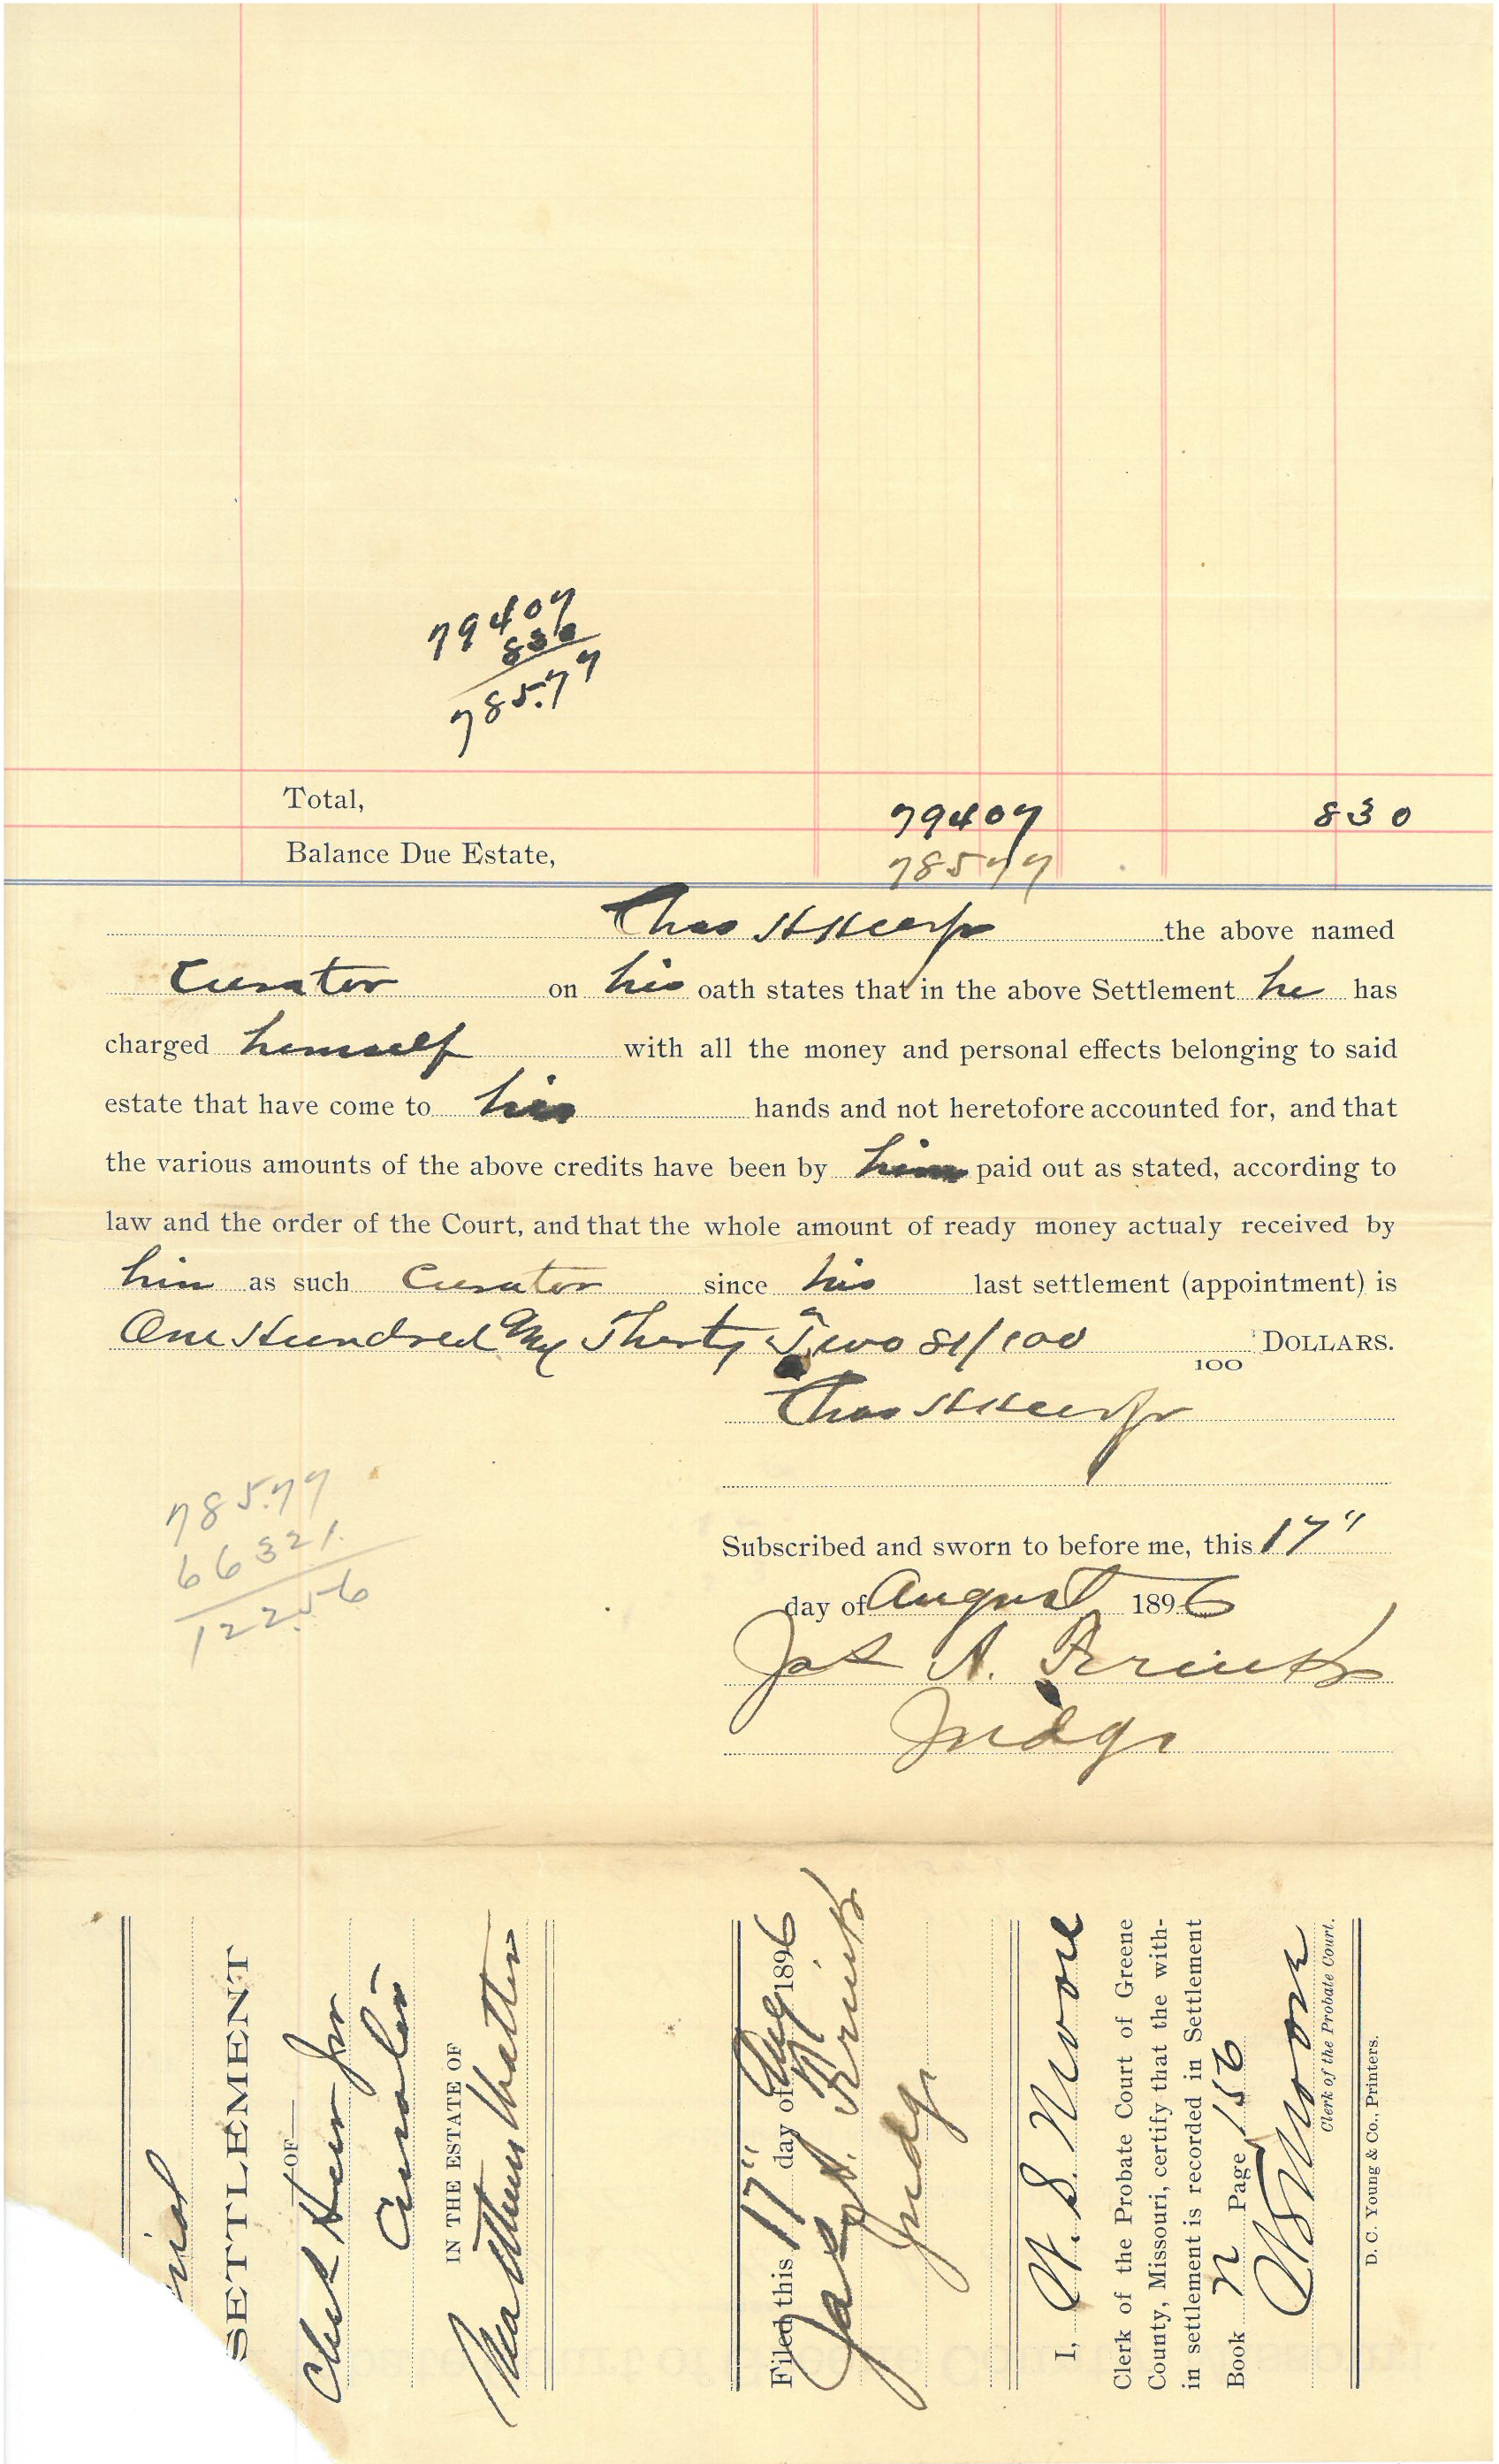 79407
830
785.77
Total, 79407 830
Balance Due Estate, 78577
Chas H Heer Jr the above named
Curator on his oath states that in the above Settlement he has
charged himself with all the money and personal effects belonging to said
estate that have come to his hands and not heretofore accounted for, and that
the various amounts of the above credits have been by him paid out as stated, according to
law and the order of the Court, and that the whole amount of ready money actualy received by
him as such Curator since his last settlement (appointment) is
One Hundred Thirty Two 81/100 100 DOLLARS.
Chas H Heer Jr
785.77
66321
122.56
Subscribed and sworn to before me, this 17"
day of August 1896
Jas A.
Judge
SETTLEMENT
OF
Chas H Heer Jr
Curator
IN THE ESTATE OF
Filed this 17" day of Aug 1896
Jas A.
Judge
I, W. S. Moore
Clerk of the Probate Court of Greene
County, Missouri, certify that the with-
in settlement is recorded in Settlement
Book N Page 156
W S Moore
Clerk of the Probate Court.
D. C. Young & Co., Printers.